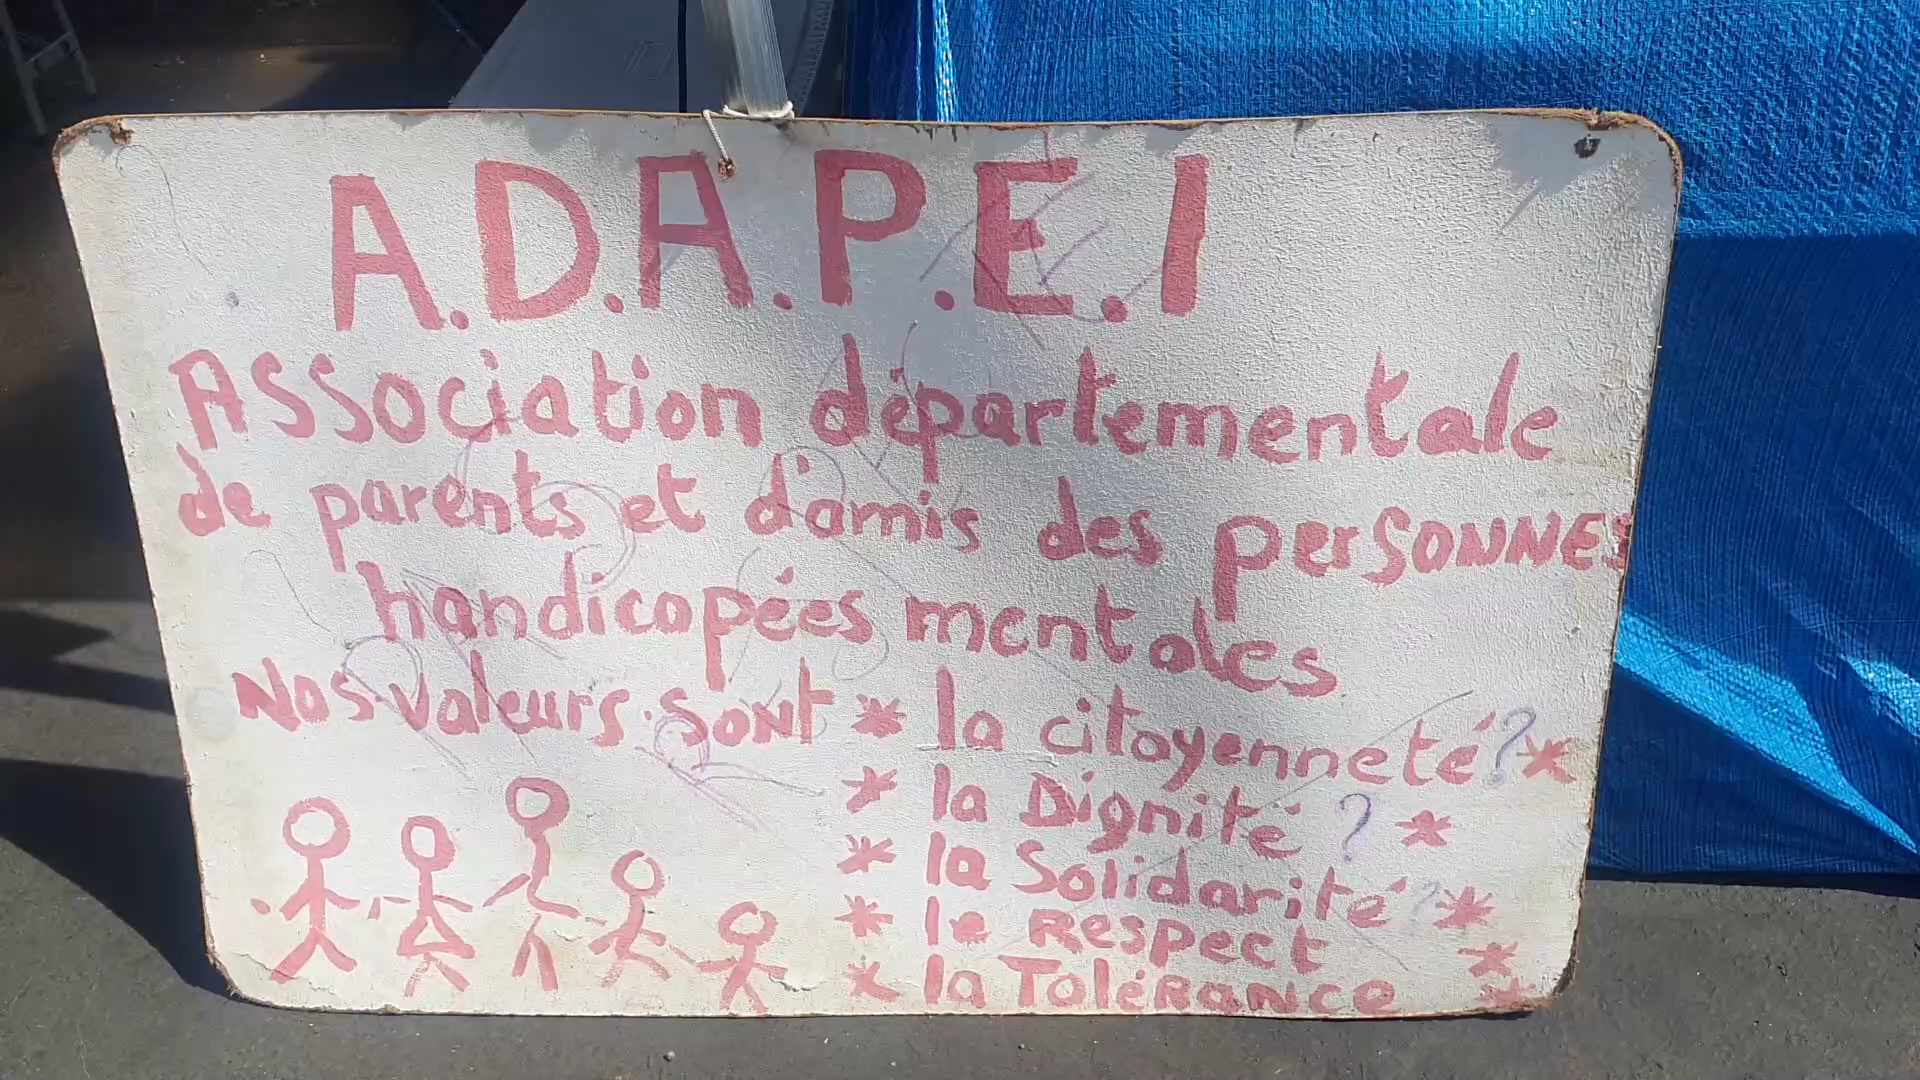 A.D.A.P.E.I
Association départementale
de parents et d'amis des personnes
handicapées mentales
Nos valeurs sont * la citoyenneté ? *
* la Dignité ? *
* la Solidarité ? *
* le Respect *
* la Tolérance *